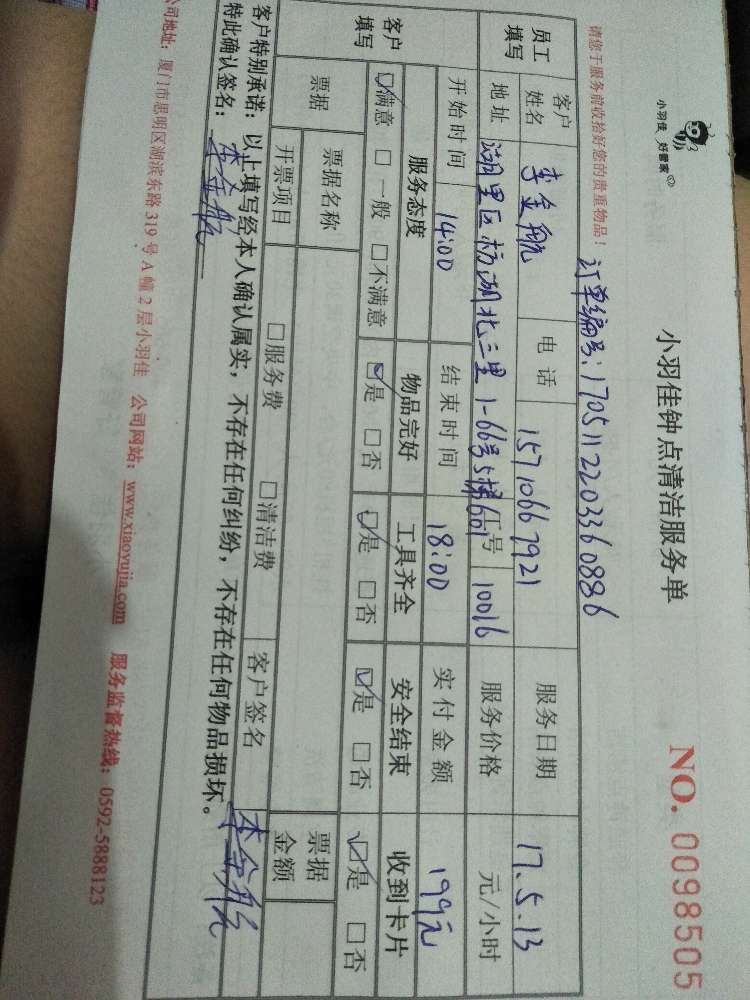 小羽佳 好管家
小羽佳钟点清洁服务单
NO. 0098505
请您于服务前收拾好您的贵重物品！
订单编号：1705112203360886
员工填写
客户姓名 李金航 电话 15710667921 服务日期 17.5.13
地址 湖里区枋湖北二里1-66号5梯601 工号 10016 服务价格 元/小时
开始时间 14:00 结束时间 18:00 实付金额 199元
客户填写
服务态度 物品完好 工具齐全 安全结束 收到卡片
☑满意 □一般 □不满意 ☑是 □否 ☑是 □否 ☑是 □否 ☑是 □否
票据 票据名称 票据金额
开票项目 □服务费 □清洁费 客户签名 李金航
客户特别承诺：以上填写经本人确认属实，不存在任何纠纷，不存在任何物品损坏。
特此确认签名：李金航
公司地址：厦门市思明区湖滨东路319号A幢2层小羽佳 公司网站：www.xiaoyujia.com 服务监督热线：0592-5888123